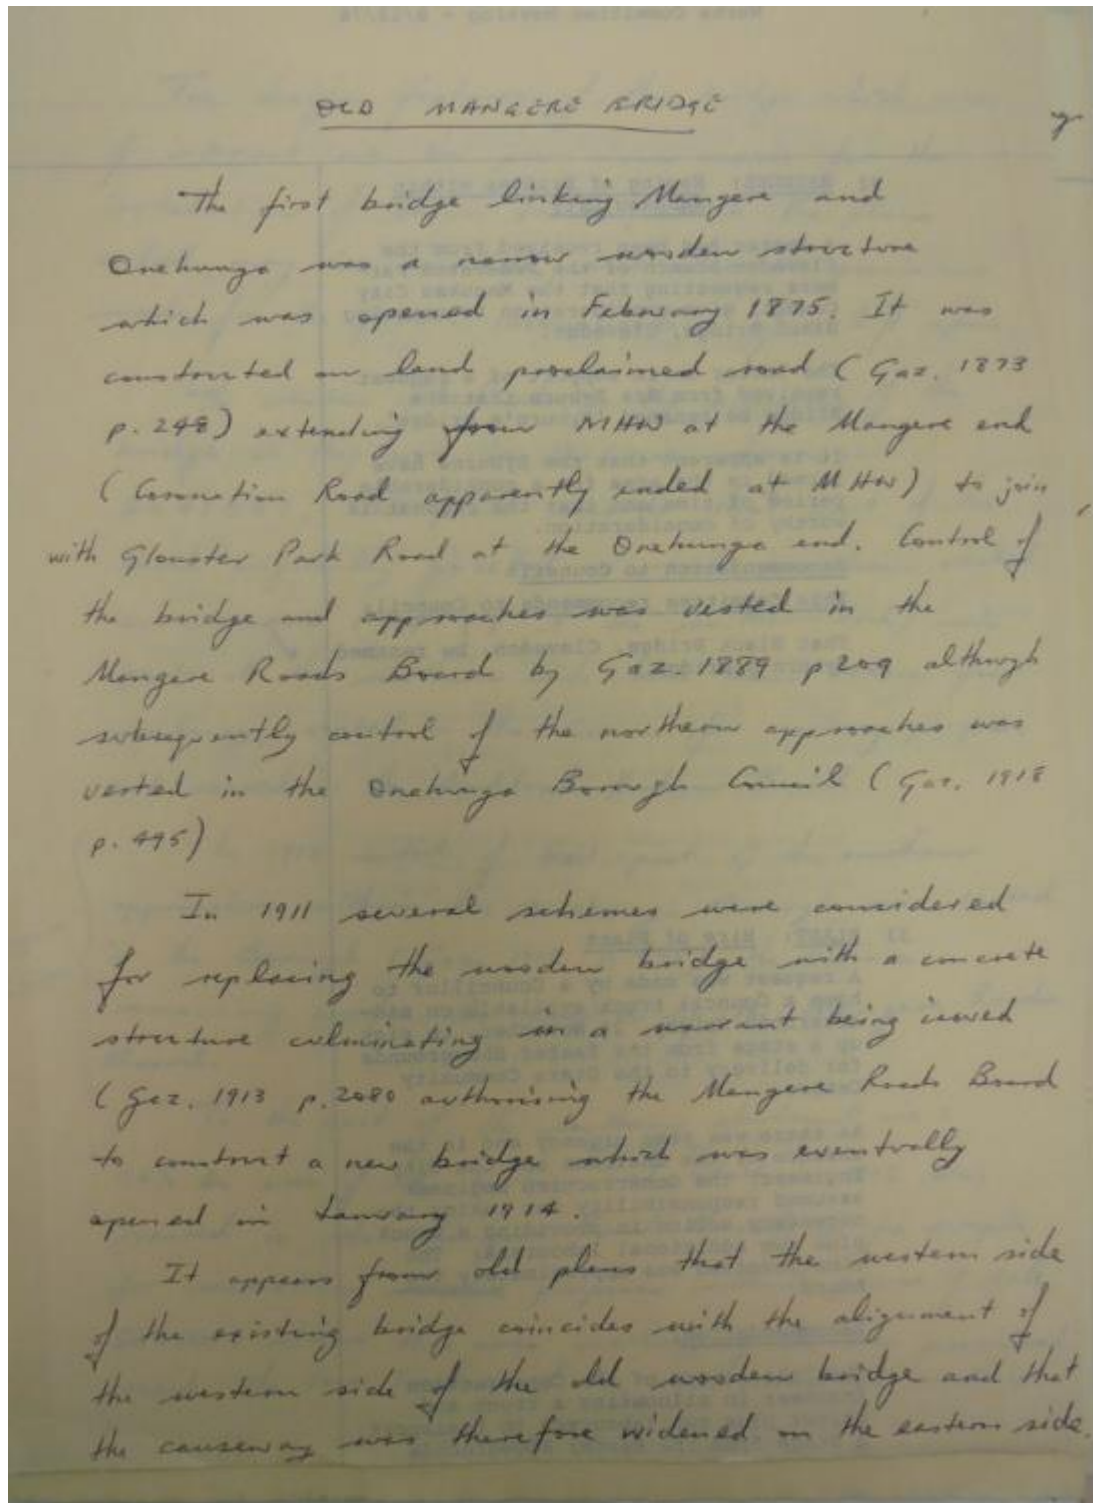 OLD MANGERE BRIDGE
The first bridge linking Mangere and
Onehunga was a narrow wooden structure
which was opened in February 1875. It was
constructed on land proclaimed road (Gaz. 1873
p. 248) extending from MHW at the Mangere end
(Coronation Road apparently ended at MHW) to join
with Glouster Park Road at the Onehunga end. Control of
the bridge and approaches was vested in the
Mangere Roads Board by Gaz. 1889 p 209 although
subsequently control of the northern approaches was
vested in the Onehunga Borough Council (Gaz. 1918
p. 495)
In 1911 several schemes were considered
for replacing the wooden bridge with a concrete
structure culminating in a warrant being issued
(Gaz. 1913 p. 2080 authorising the Mangere Roads Board
to construct a new bridge which was eventually
opened in January 1914.
It appears from old plans that the western side
of the existing bridge coincides with the alignment of
the western side of the old wooden bridge and that
the causeway was therefore widened on the eastern side.